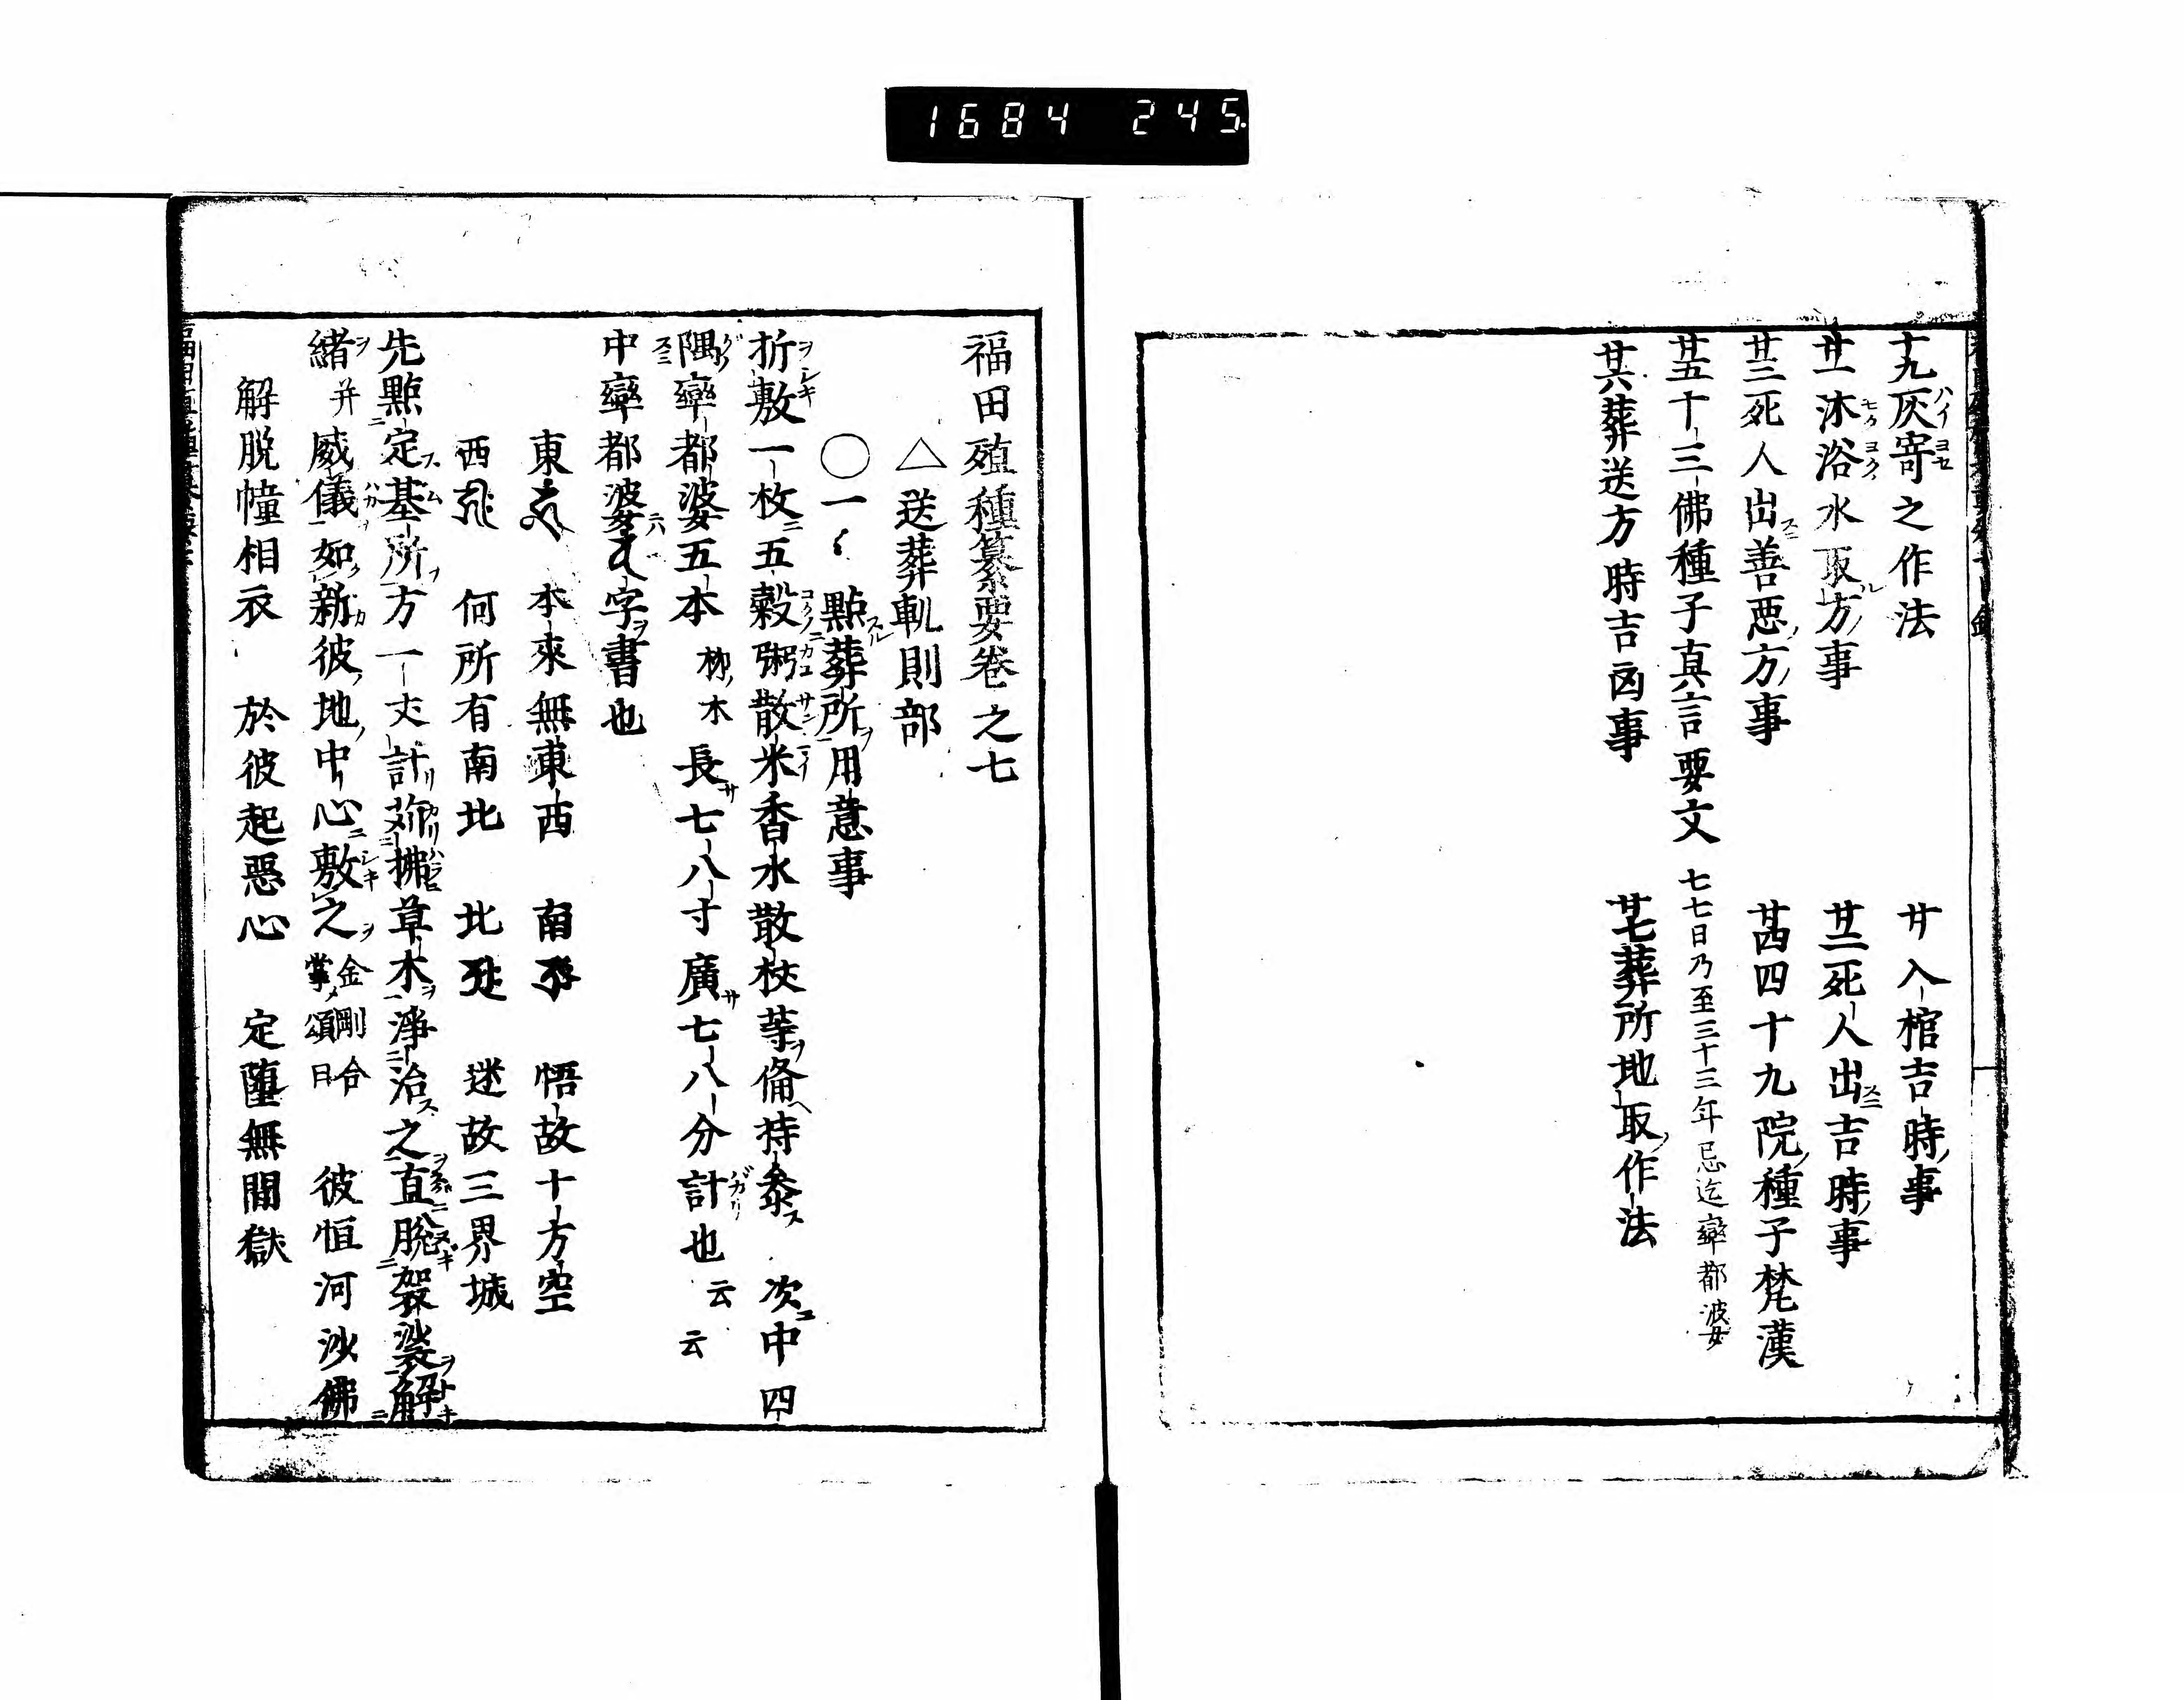 1684 245
十九灰寄之作法 廿入棺吉時事
廿一沐浴水取方事 廿二死人出吉時事
廿三死人出善悪方事 廿四四十九院種子梵漢
廿五十三佛種子真言要文 七七日乃至三十三年忌迄窣都波女
廿六葬送方時吉凶事 廿七葬所地取作法
福田殖種纂要卷之七
△送葬軌則部
○一〻點葬所用意事
折敷一枚五穀粥散米香水散杖等俻持參 次中四
隅窣都婆五本 栁木 長七八寸廣七八分計也 云云
中窣都婆字書也
東 本來無東西 南 悟故十方空
西 何所有南北 北 迷故三界城
先點定墓所方一丈計苅拂草木淨治之直脫袈裟解
緒并威儀如新彼地中心敷之 金剛合掌頌曰 彼恒河沙佛
解脱幢相衣 於彼起惡心 定墮無間獄